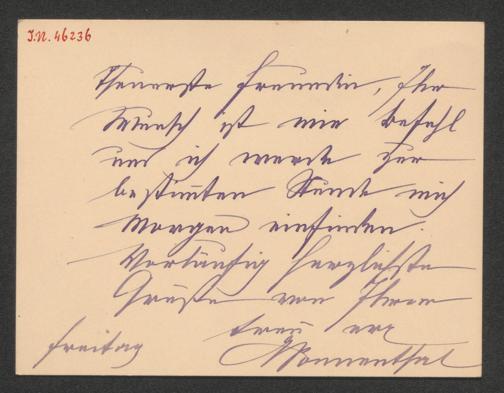 J.N. 46236
Theuerste Freundin, Ihr
Wunsch ist mir Befehl
und ich werde zur
bestimten Stunde mich
Morgen einfinden.
Vorläufig herzlichste
Grüße von Ihrem
treu erg
Sonnenthal
Freitag